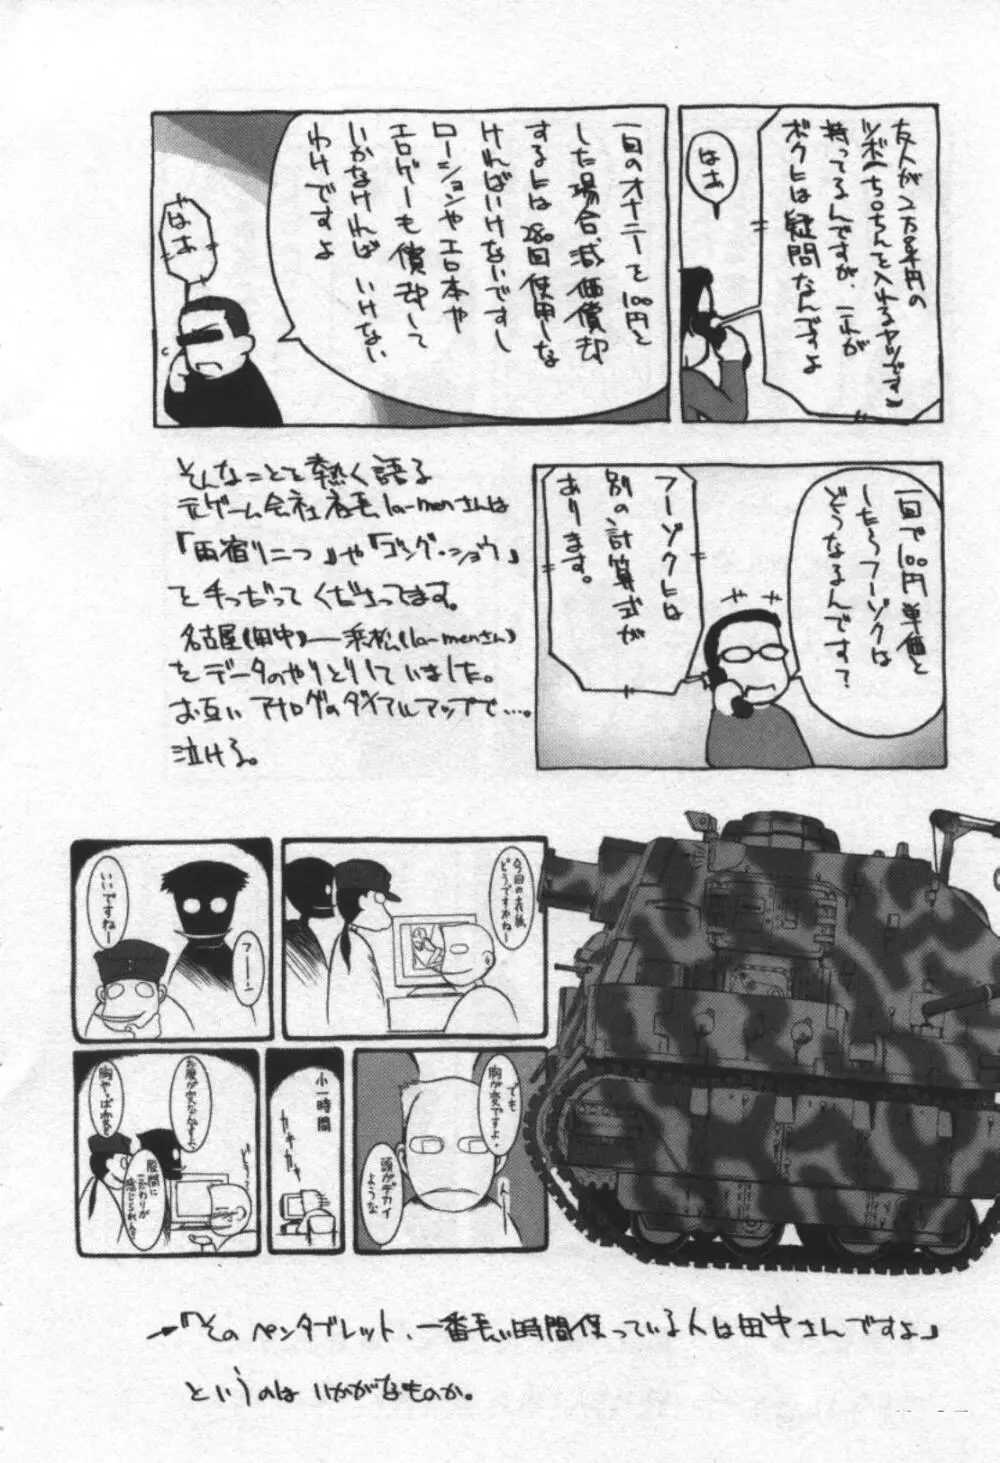 友人が2万8千円の
ツボ(ちんちんを入れるヤツです)
持ってるんですが、これが
ボクは疑問なんですよ
はぁ
一回のオナニーを100円と
した場合、減価償却
するには280回使用しな
ければいけないですし
ローションやエロ本や
エロゲーも償却して
いかなければいけない
わけですよ
はぁ
一回で100円単価と
したらフーゾクは
どうなるんです?
フーゾクには
別の計算式が
あります。
そんなことを熱く語る
元ゲーム会社社長、la-menさんは
「西宿りニつ」や「ゴング・ショウ」
を手つだってくださってます。
名古屋(田中)――浜松(la-menさん)
をデータのやりとりしていました。
お互いアナログのダイアルアップで…。
泣ける。
今回の表紙
どうですかねー
いいですねー
フーー!
でも
胸が変ですよ。
頭がデカイ
ような
小一時間
カキカキ
お腹が変なんすよ、
胸やっぱ変な
股間に
こだわりが
感じられん?
→「『そのペンタブレット、一番長い時間使っている人は田中さんですよ」
というのはいかがなものか。